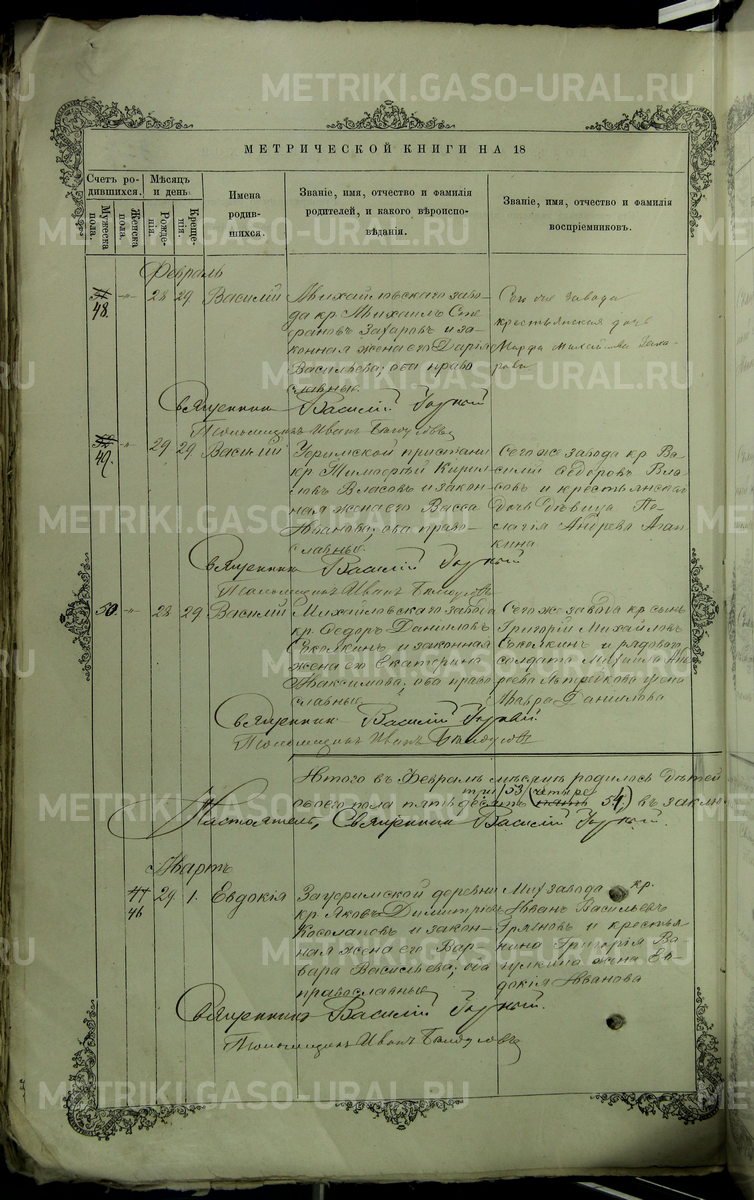 МЕТРИЧЕСКОЙ КНИГИ НА 18
Счетъ родившихся.
Мѣсяцъ и день.
Имена родившихся.
Званіе, имя, отчество и фамилія родителей, и какого вѣроисповѣданія.
Званіе, имя, отчество и фамилія воспріемниковъ.
Мужеска пола.
Женска пола.
Рожденія.
Крещенія.
Февраль
48. 28 29 Василій
Михайловскаго заво-
да кр. Михаилъ
Захаровъ и за-
конная жена его Дарія
Васильева; оба право
славные.
Сего же завода
крестьянская дочь
Марфа Заха-
рова
Священникъ Василій
Псаломщикъ Иванъ
49. 29 29 Василій
Уфимской пристани
кр. Тимофей Кирил
ловъ Власовъ и закон
ная жена его Васса
Иванова; оба право-
славные.
Сего же завода кр. Ва-
силій Федоровъ Вла-
совъ и крестьянская
дочь дѣвица Пе-
лагія Андреева
Священникъ Василій
Псаломщикъ Иванъ
50. 28 29 Василій
Михайловскаго завода
кр. Федоръ Даниловъ
и законная
жена его Екатерина
Максимова; оба право
славные.
Сего же завода кр. сынъ
Григорій Михайловъ
и рядового
солдата Михаила Анд
реева жена
Мавра Данилова
Священникъ Василій
Псаломщикъ Иванъ
Итого въ Февралѣ мѣсяцѣ родилось дѣтей
обоего пола пятьдесятъ четыре 54
Настоятель, Священникъ Василій
Мартъ
46 29 1. Евдокія
Зауфимской деревни
кр. Яковъ Димитріевъ
Косолаповъ и закон-
ная жена его Вар-
вара Васильева; оба
православные
Мих. завода кр.
Иванъ Васильевъ
и крестья
нина Григорія Ва
жена Ев-
докія Иванова
Священникъ Василій
Псаломщикъ Иванъ
METRIKI.GASO-URAL.RU